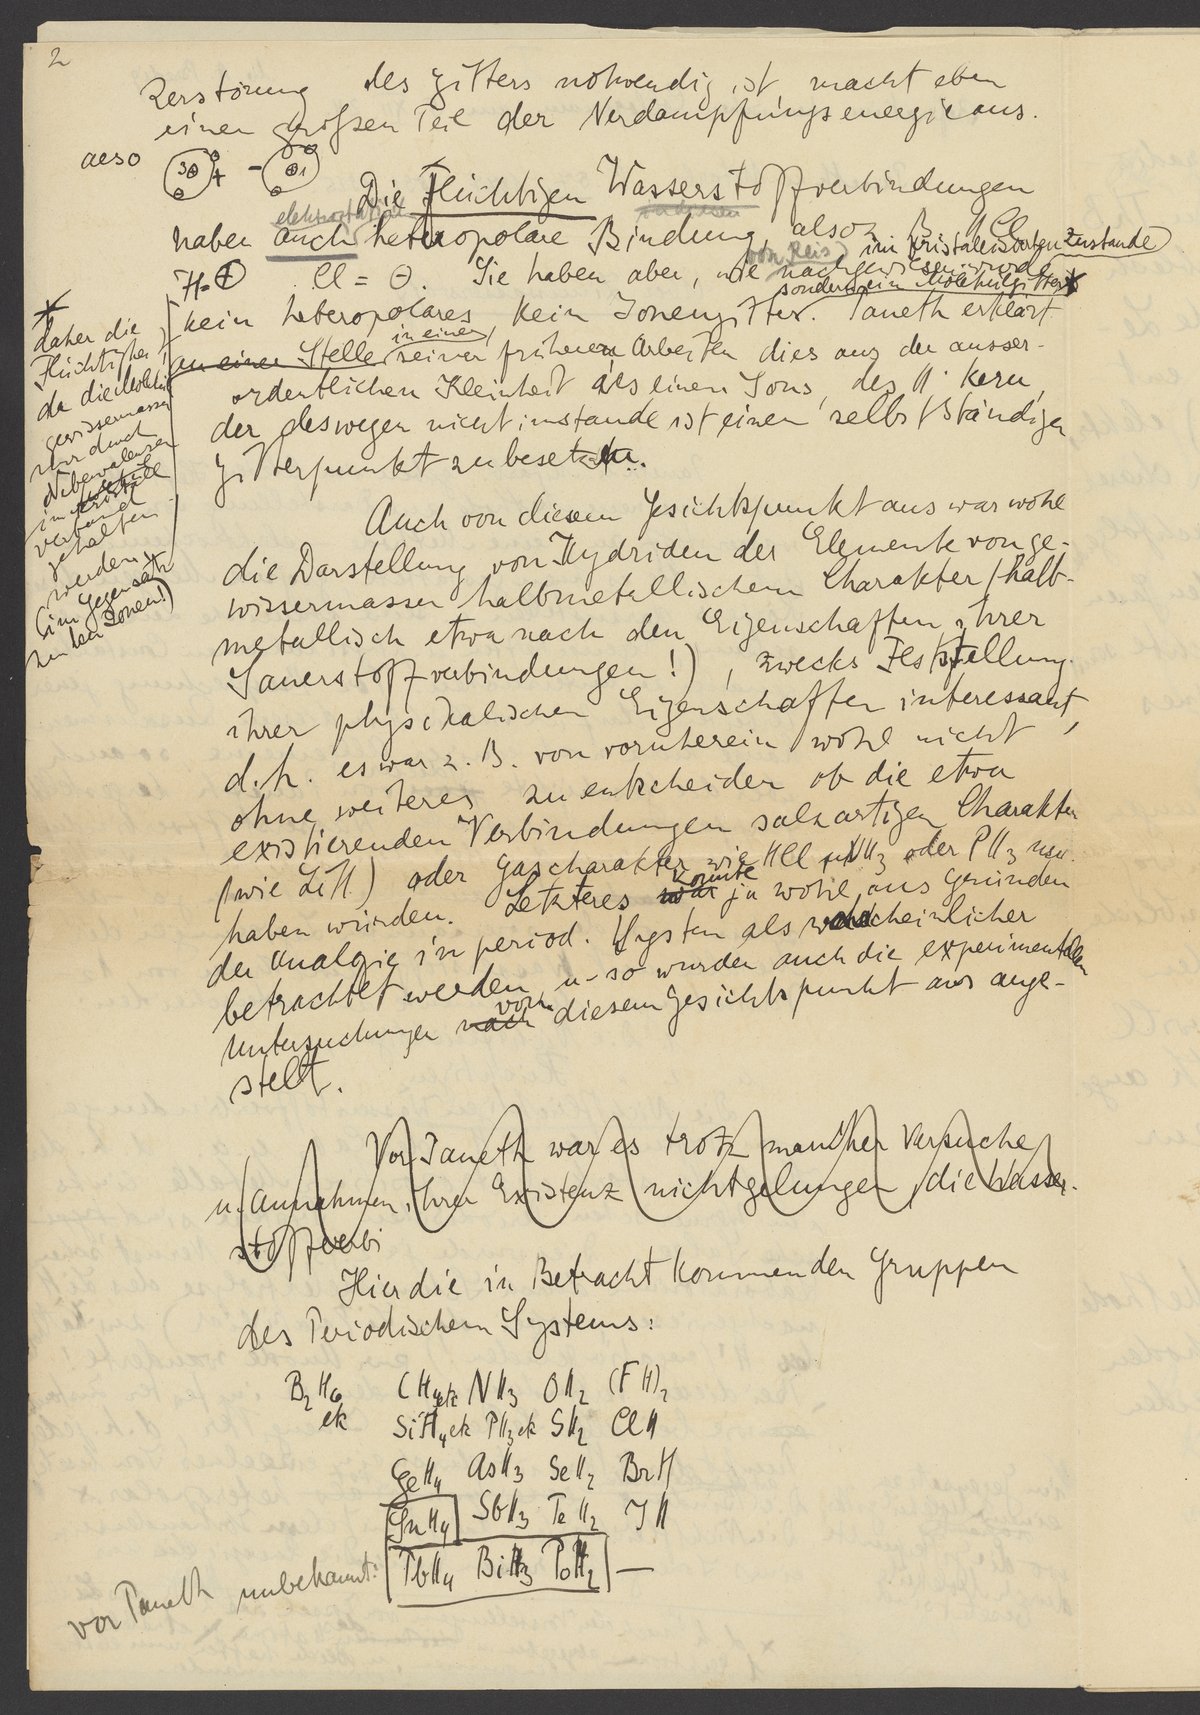 2
Zerstörung des Gitters notwendig ist, macht eben
einen großen Teil der Verdampfungsenergie aus.
also 3⊕ + - ⊕1
Die flüchtigen Wasserstoffverbindungen
haben auch heteropolare Bindung, also z. B. HCl
im kristallisierten Zustande
H=⊕ Cl=⊖. Sie haben aber, wie nachgewiesen wurde
von Reis
sondern ein Molekülgitter*
kein heteropolares, kein Ionengitter. Paneth erklärt
in einer
an einer Stelle seiner früheren Arbeiten dies aus der ausser-
ordentlichen Kleinheit des einen Ions, des H· Kern,
der deswegen nicht imstande ist einen selbstständigen
Gitterpunkt zu besetzen.
* daher die
Flüchtigkeit,
da die Moleküle
gewissermassen
nur durch
Nebenvalenzen
im Kristall
verband
gehalten
werden,
(im Gegensatz
zu den Ionen!)
Auch von diesem Gesichtspunkt aus war wohl
die Darstellung von Hydriden der Elemente von ge-
wissermassen halbmetallischem Charakter (halb-
metallisch etwa nach den Eigenschaften ihrer
Sauerstoffverbindungen!), zwecks Feststellung
ihrer physikalischen Eigenschaften interessant,
d.h. es war z. B. von vornherein wohl nicht
ohne weiteres zu entscheiden ob die etwa
existierenden Verbindungen salzartigen Charakter
(wie LiH) oder Gascharakter wie HCl, NH3 oder PH3 usw.
haben würden. Letzteres war konnte ja wohl aus Gründen
der Analogie im period. System als wahrscheinlicher
betrachtet werden, u. so wurden auch die experimentellen
Untersuchungen nach vom diesem Gesichtspunkt aus ange-
stellt.
Vor Paneth war es trotz mancher Versuche
u. Annahmen ihrer Existenz nicht gelungen, die Wasser-
stoffverbi
Hier die in Betracht kommenden Gruppen
des Periodischen Systems:
B2H6 ek CH4 ek NH3 OH2 (FH)2
SiH4 ek PH3 ek SH2 ClH
GeH4 AsH3 SeH2 BrH
SnH4 SbH3 TeH2 JH
vor Paneth unbekannt: PbH4 BiH3 PoH2 —